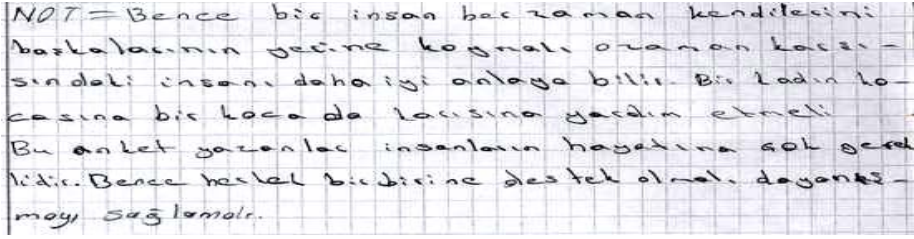 NOT = Bence bir insan her zaman kendilerini
başkalarının yerine koymalı ozaman karşı-
sındaki insanı daha iyi anlaya bilir. Bir kadın ko-
casına bir koca da karısına yardım etmeli
Bu anket yazanlar insanların hayatına çok gerek
lidir. Bence herkes birbirine destek olmalı dayanış-
mayı sağlamalı.